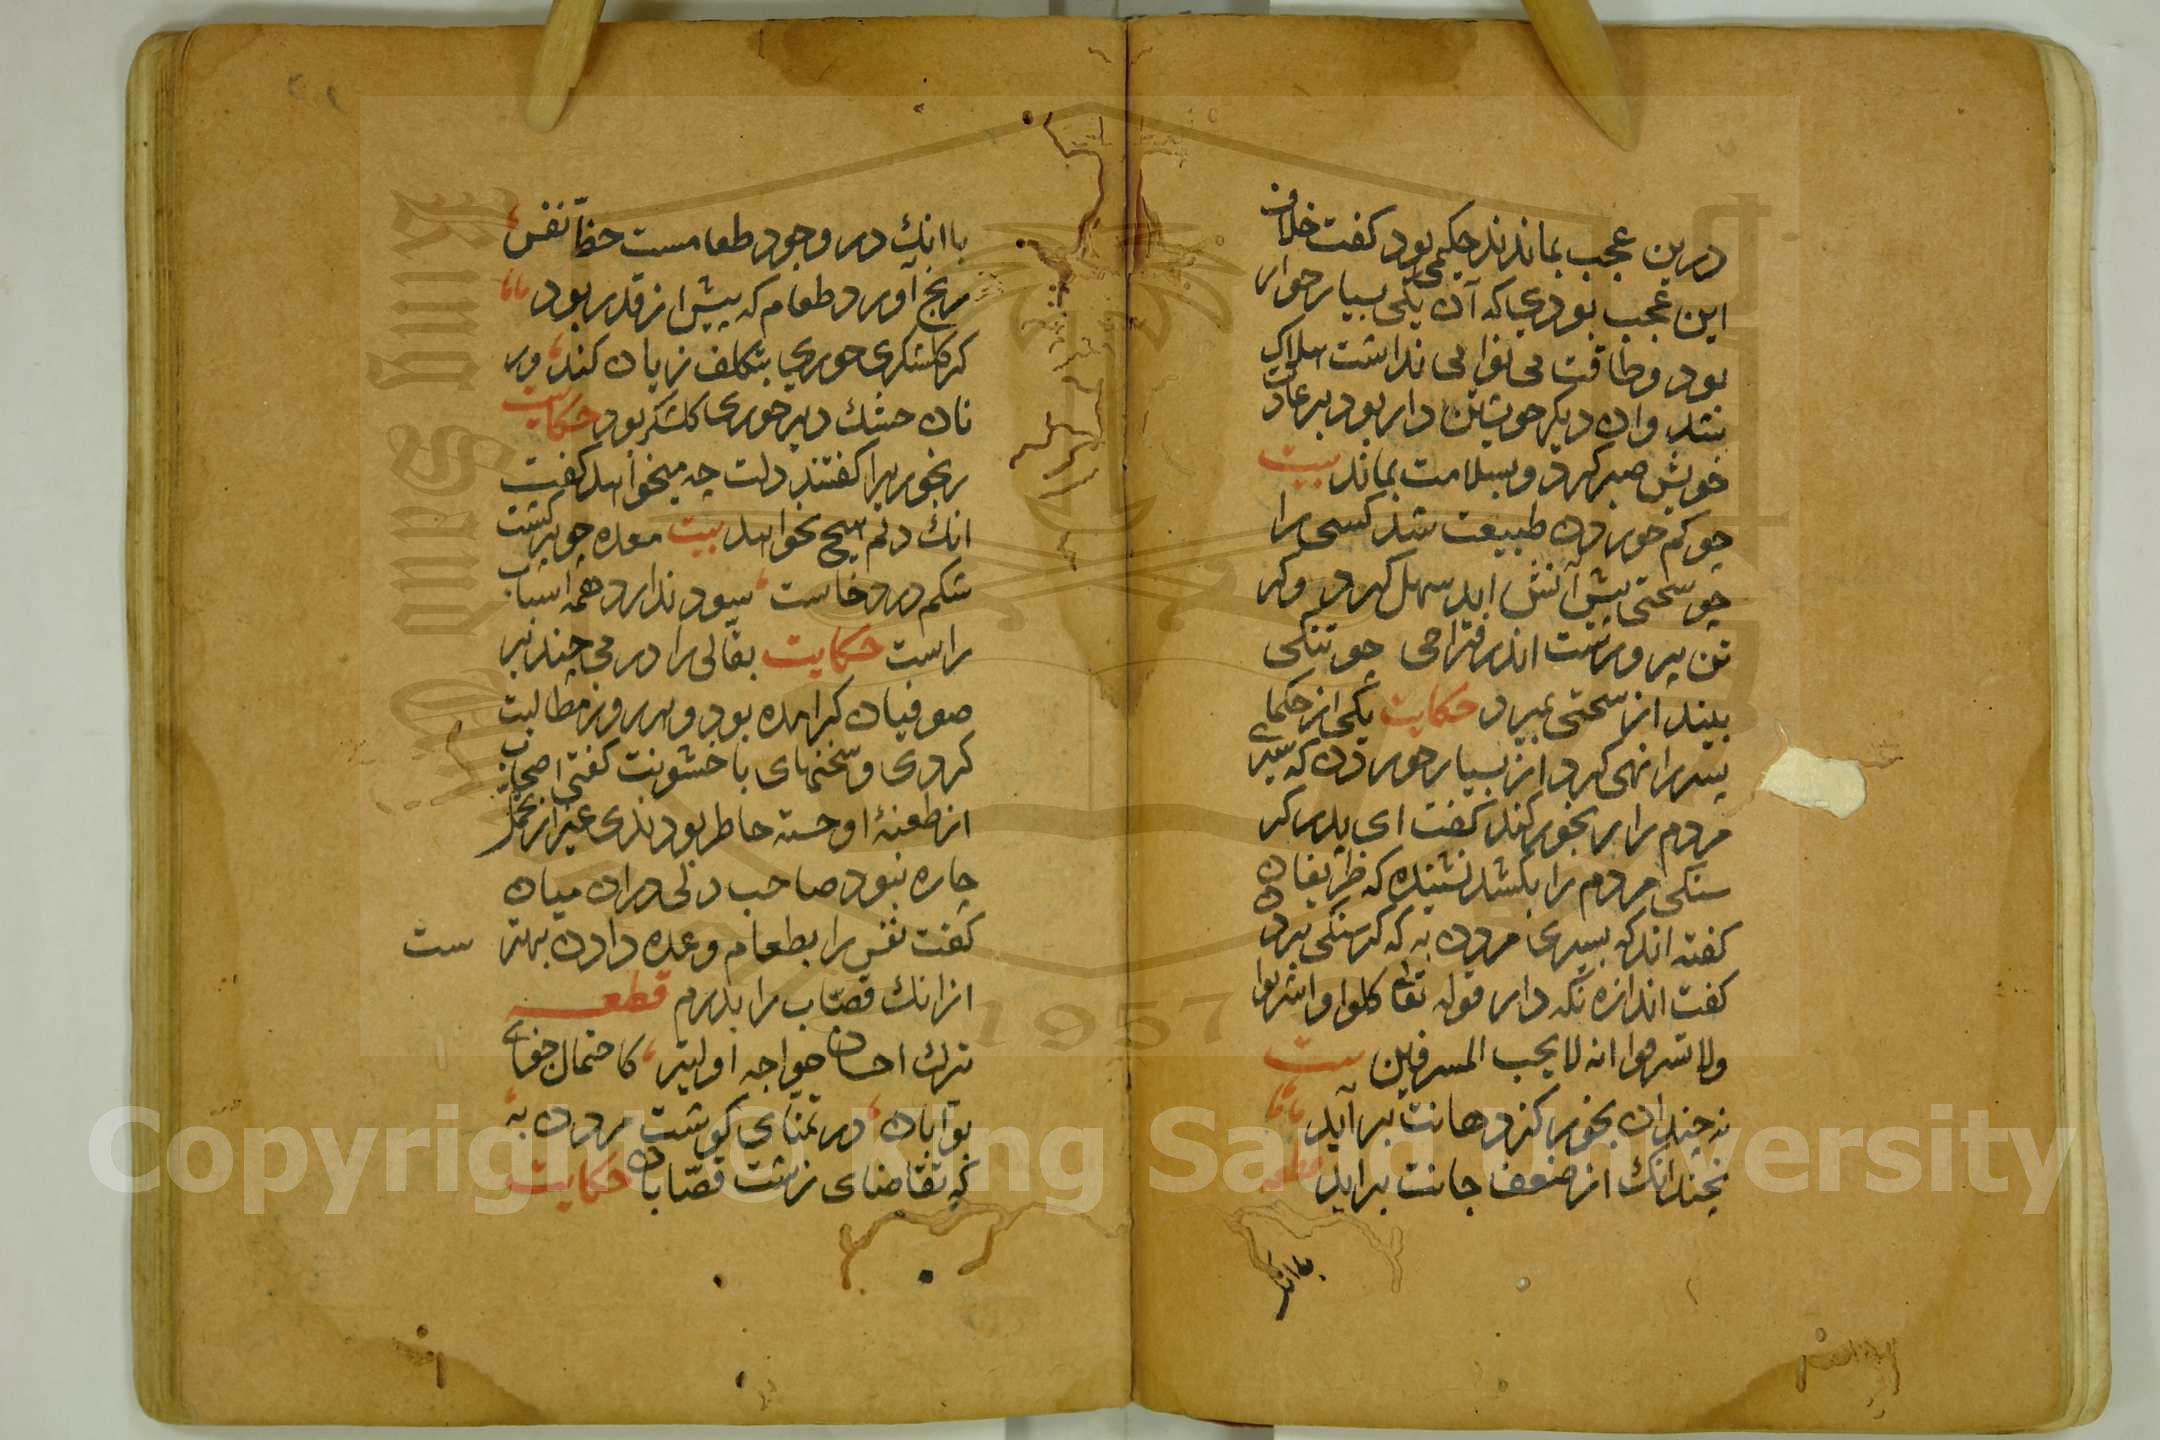 درین عجب بماندند حکیمی بود کفت خلاف
این عجب بودی که آن یکی بسیار خوار
بود وطاقت بی نوایی نداشت هلاک
شد وان دیکر خویشتن دار بود بر عادت
خویش صبر کرد وبسلامت بماند بیت
چو کم خوردن طبیعت شد کسی را
چو سختی پیش آنش اید سهل کیرد وکر
تن پرورست اندر فراخی چو تنکی
بیند از سختی بمیرد حکایت یکی از حکمای
پسر را نهی کرد از بسیار خوردن که سیری
مردم را رنجور کند کفت ای پدر کر
سنکی مردم را بکشد نشنیده که ظریفان
کفته اند که بسیری مردن به که کرسنکی بردن
کفت اندازه نکه دار قوله تعالی کلوا واشربوا
ولا تسرفوا انه لا یحب المسرفین بیت
نه چندان بخور کز دهانت بر آید
نچندانک از ضعف جانت براید قطعه
با انک
با انک در وجود طعامست حظّ نفس
رنج آورد طعام که بیش از قدر بود
کر کلشکری خوری بتکلف زیان کند ور
نان خشک دیر خوری کلشکر بود حکایت
رنجوریرا کفتند دلت چه میخواهد کفت
انک دلم هیچ نخواهد بیت معده چو پر کشت
شکم درد خاست سود ندارد همه اسباب
راست حکایت بقالی را درمی چند بر
صوفیان کرامده بود وهر روز مطالبت
کردی وسخنهای با خشونت کفتی اصحاب
از طعنهٔ او خسته خاطر بودندی غیر از تحمل
چاره نبود صاحب دلی دران میان
کفت نفس را بطعام وعده دادن بهتر ست
از انک قصّاب را بدرم قطعه
ترک احسان خواجه اولیتر کاحتمال جفای
بوّابان در تمنّای کوشت مردن به
که تقاضای زشت قصّابان حکایت